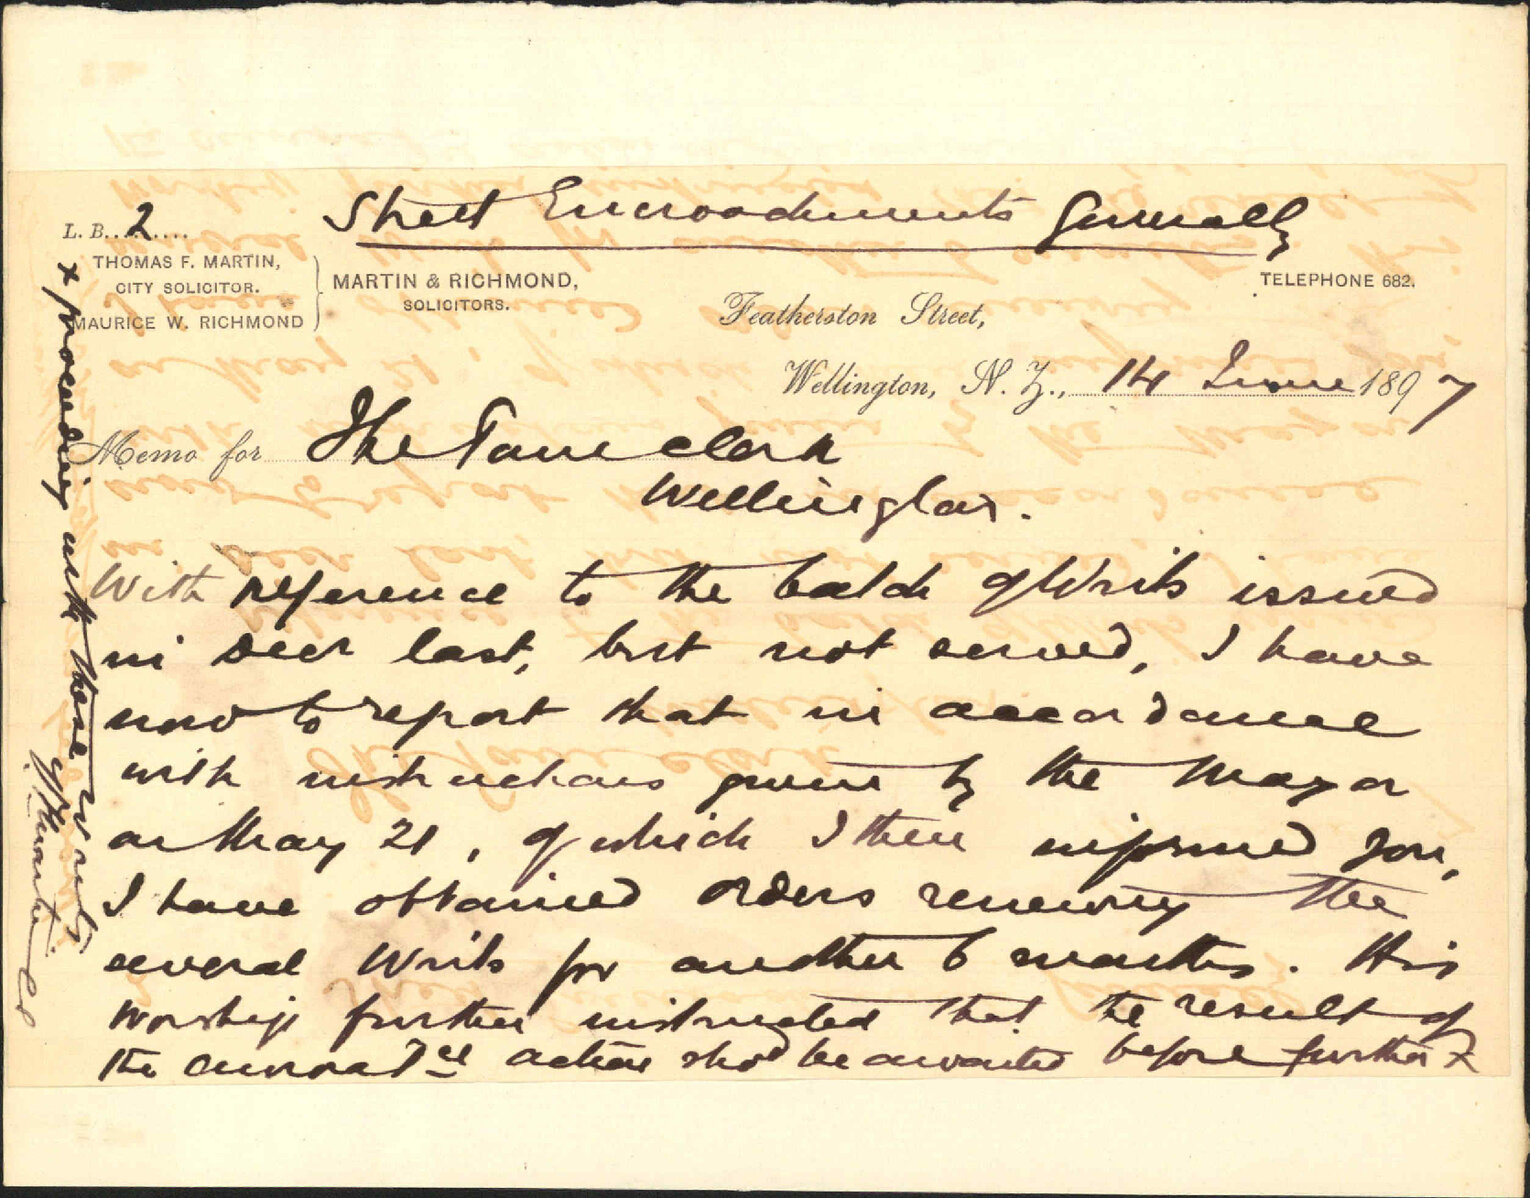 Street Encroachments Generally
L. B. 2
THOMAS F. MARTIN,
CITY SOLICITOR.
MAURICE W. RICHMOND
MARTIN & RICHMOND,
SOLICITORS.
TELEPHONE 682.
Featherston Street,
Wellington, N. Z., 14 June 1897
Memo for The Town Clerk
Wellington.
With reference to the batch of Writs issued
in Decr last, but not served, I have
now to report that in accordance
with instructions given by the Mayor
on May 21, of which I then informed you,
I have obtained orders renewing the
several Writs for another 6 months. His
Worship further instructed that the result of
the action shd be awaited before further x
x proceeding with these writs